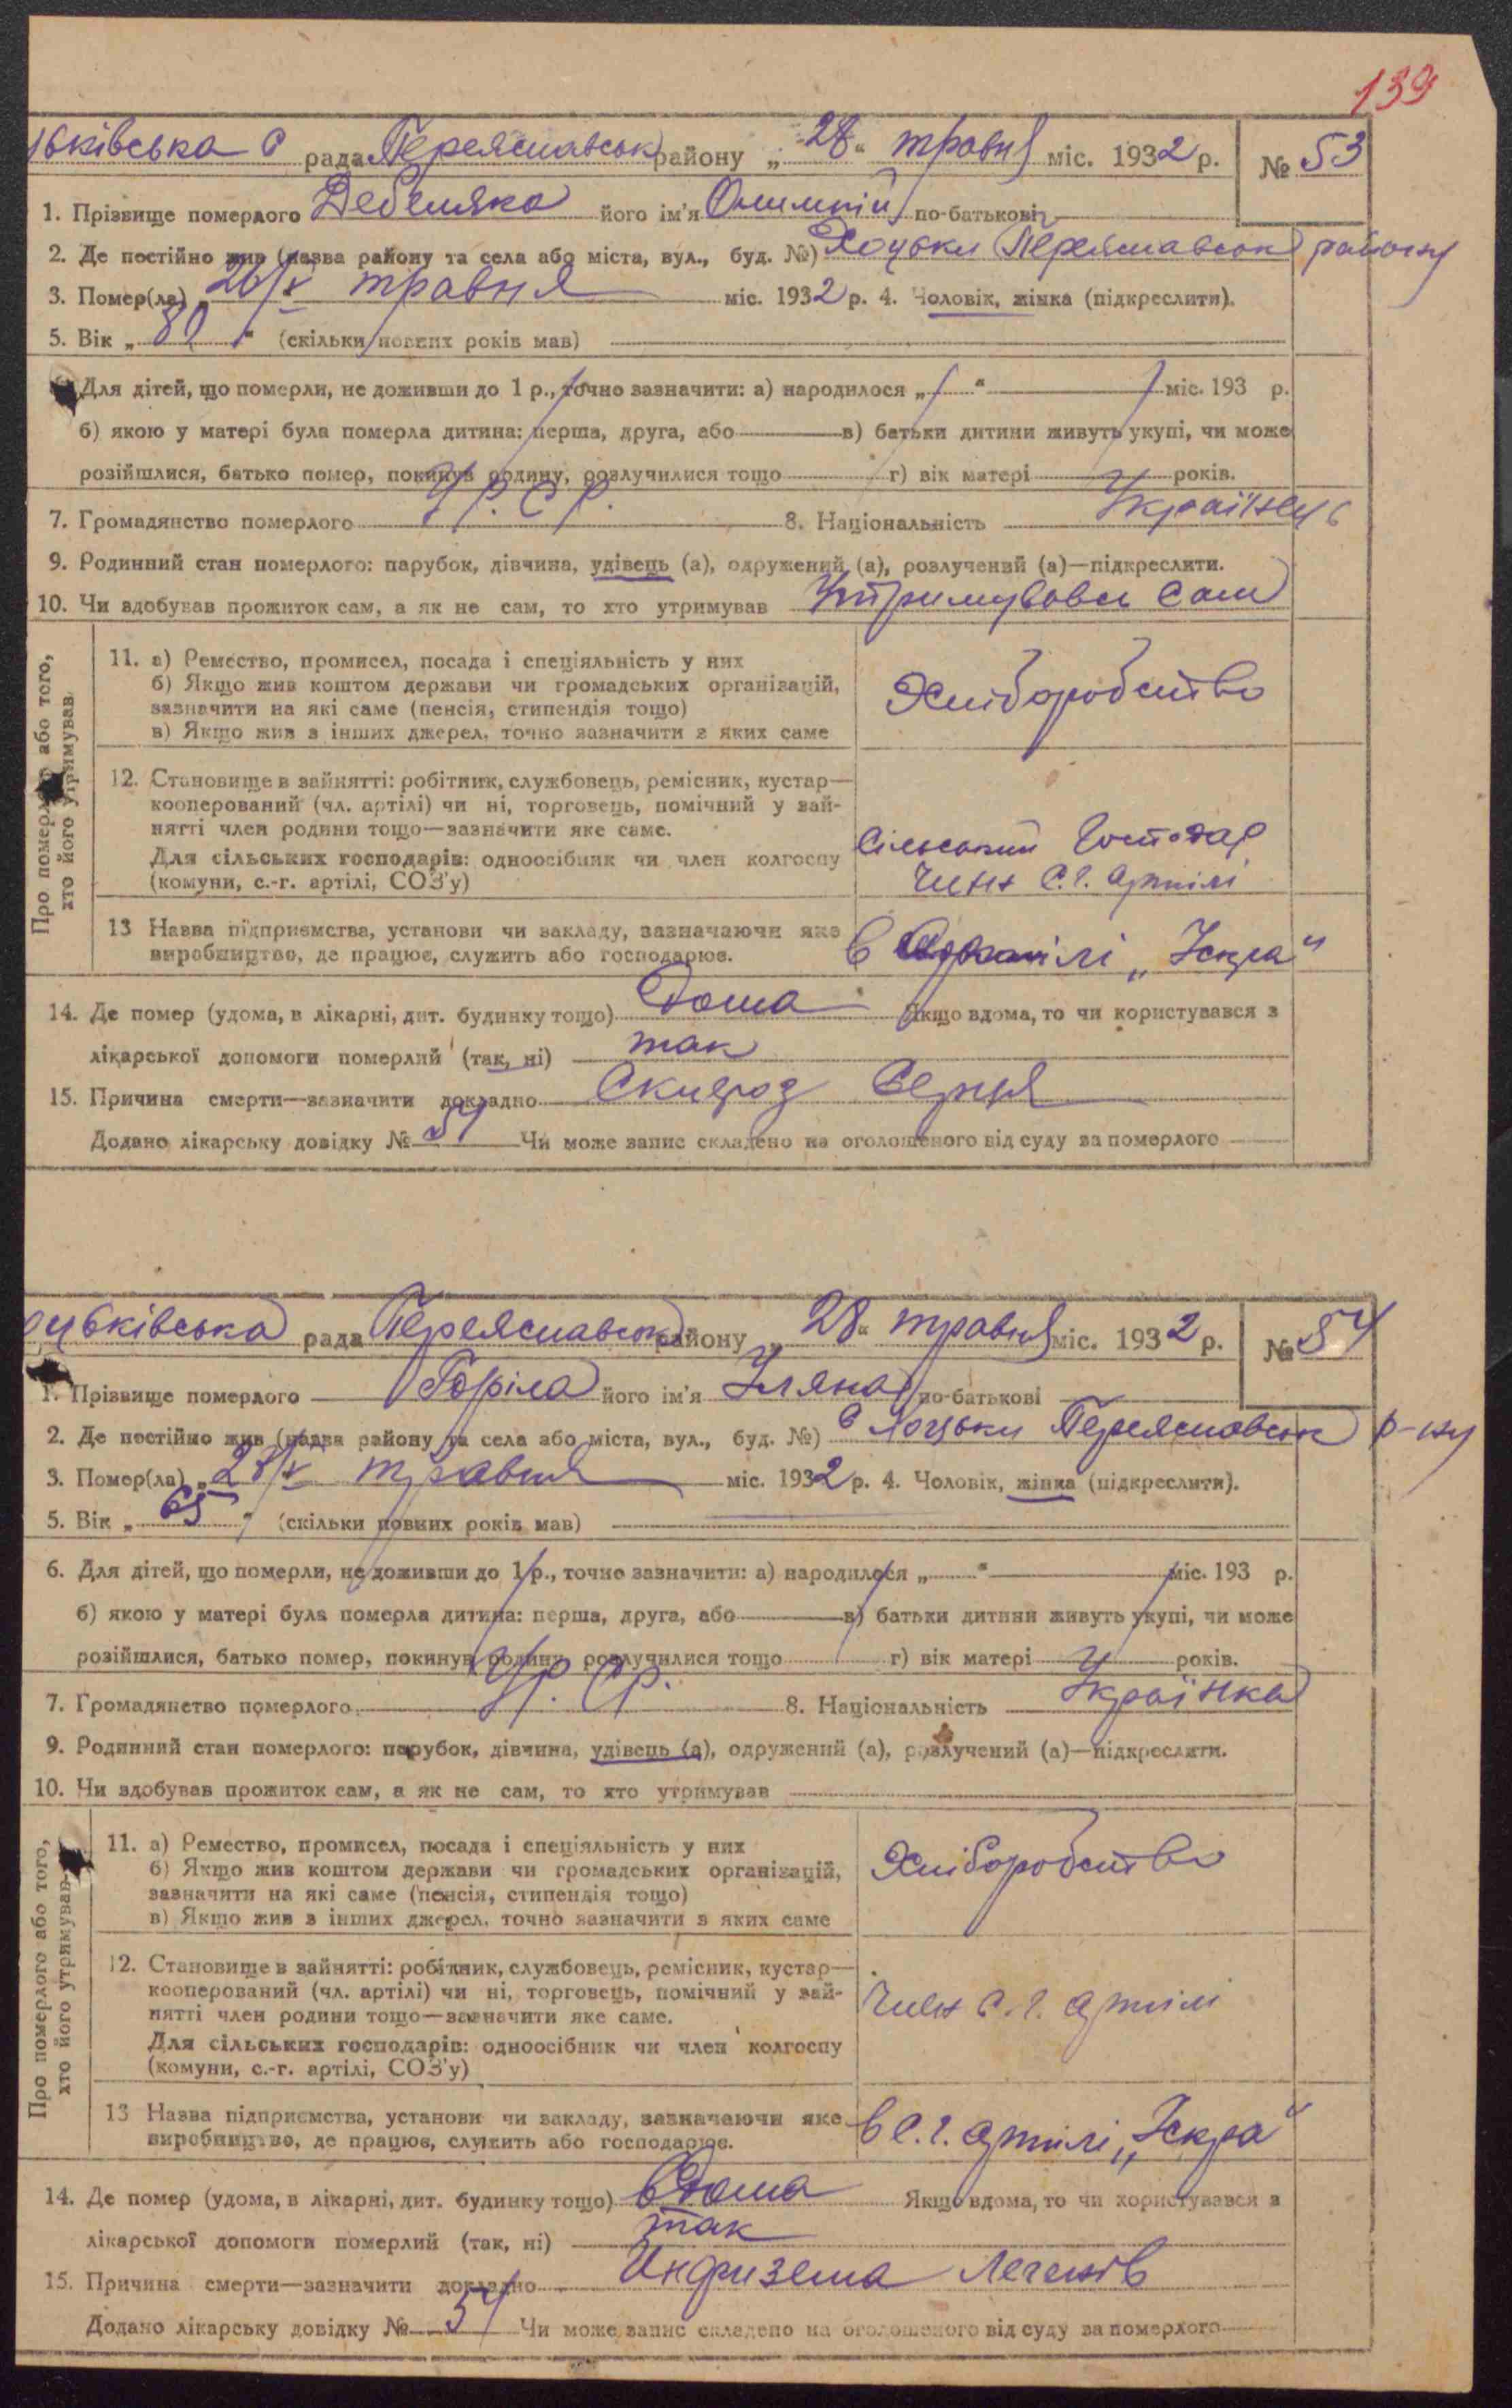 139
цьківська с рада Переяславськ району „28“ травня міс. 1932 р. № 53
1. Прізвище померлого Дебеляко його ім'я Олимпій по-батькові
2. Де постійно жив (назва району та села або міста, вул., буд. №) Хоцьки Переяславськ району
3. Помер(ла) „26/V травня міс. 1932 р. 4. Чоловік, жінка (підкреслити).
5. Вік „80“ (скільки повних років мав)
6. Для дітей, що померли, не доживши до 1 р., точно зазначити: а) народилося „ “ міс. 193 р.
б) якою у матері була померла дитина: перша, друга, або в) батьки дитини живуть укупі, чи може
розійшлися, батько помер, покинув родину, розлучилися тощо г) вік матері років.
7. Громадянство померлого У.Р.С.Р. 8. Національність Українець
9. Родинний стан померлого: парубок, дівчина, удівець (а), одружений (а), розлучений (а)—підкреслити.
10. Чи здобував прожиток сам, а як не сам, то хто утримував Утримувався Сам
Про померлого або того, хто його утримував
11. а) Ремество, промисел, посада і спеціяльність у них
б) Якщо жив коштом держави чи громадських організацій,
зазначити на які саме (пенсія, стипендія тощо)
в) Якщо жив з інших джерел, точно зазначити з яких саме
Хліборобство
12. Становище в зайнятті: робітник, службовець, ремісник, кустар—
кооперований (чл. артілі) чи ні, торговець, помічний у зай-
нятті член родини тощо—зазначити яке саме.
Для сільських господарів: одноосібник чи член колгоспу
(комуни, с.-г. артілі, СОЗ'у)
Сільський Господар
Член С.г. артілі
13 Назва підприємства, установи чи закладу, зазначаючи яке
виробництво, де працює, служить або господарює.
в артілі „Іскра“
14. Де помер (удома, в лікарні, дит. будинку тощо) Дома Якщо вдома, то чи користувався з
лікарської допомоги померлий (так, ні) так
15. Причина смерти—зазначити докладно Склероз Серця
Додано лікарську довідку № 51 Чи може запис складено на оголошеного від суду за померлого
цьківська рада Переяславськ району „28“ травня міс. 1932 р. № 54
1. Прізвище померлого Горіла його ім'я Уляна по-батькові
2. Де постійно жив (назва району та села або міста, вул., буд. №) с Хоцьки Переяславськ р-ну
3. Помер(ла) „28/V травня міс. 1932 р. 4. Чоловік, жінка (підкреслити).
5. Вік „65“ (скільки повних років мав)
6. Для дітей, що померли, не доживши до 1 р., точно зазначити: а) народилося „ “ міс. 193 р.
б) якою у матері була померла дитина: перша, друга, або в) батьки дитини живуть укупі, чи може
розійшлися, батько помер, покинув родину, розлучилися тощо г) вік матері років.
7. Громадянство померлого УР.СР. 8. Національність Українка
9. Родинний стан померлого: парубок, дівчина, удівець (а), одружений (а), розлучений (а)—підкреслити.
10. Чи здобував прожиток сам, а як не сам, то хто утримував
Про померлого або того, хто його утримував
11. а) Ремество, промисел, посада і спеціяльність у них
б) Якщо жив коштом держави чи громадських організацій,
зазначити на які саме (пенсія, стипендія тощо)
в) Якщо жив з інших джерел, точно зазначити з яких саме
Хліборобство
12. Становище в зайнятті: робітник, службовець, ремісник, кустар—
кооперований (чл. артілі) чи ні, торговець, помічний у зай-
нятті член родини тощо—зазначити яке саме.
Для сільських господарів: одноосібник чи член колгоспу
(комуни, с.-г. артілі, СОЗ'у)
Член С.г. артілі
13 Назва підприємства, установи чи закладу, зазначаючи яке
виробництво, де працює, служить або господарює.
в С.г. артілі „Іскра“
14. Де помер (удома, в лікарні, дит. будинку тощо) вдома Якщо вдома, то чи користувався з
лікарської допомоги померлий (так, ні) так
15. Причина смерти—зазначити докладно Инфизема Легенів
Додано лікарську довідку № 54 Чи може запис складено на оголошеного від суду за померлого